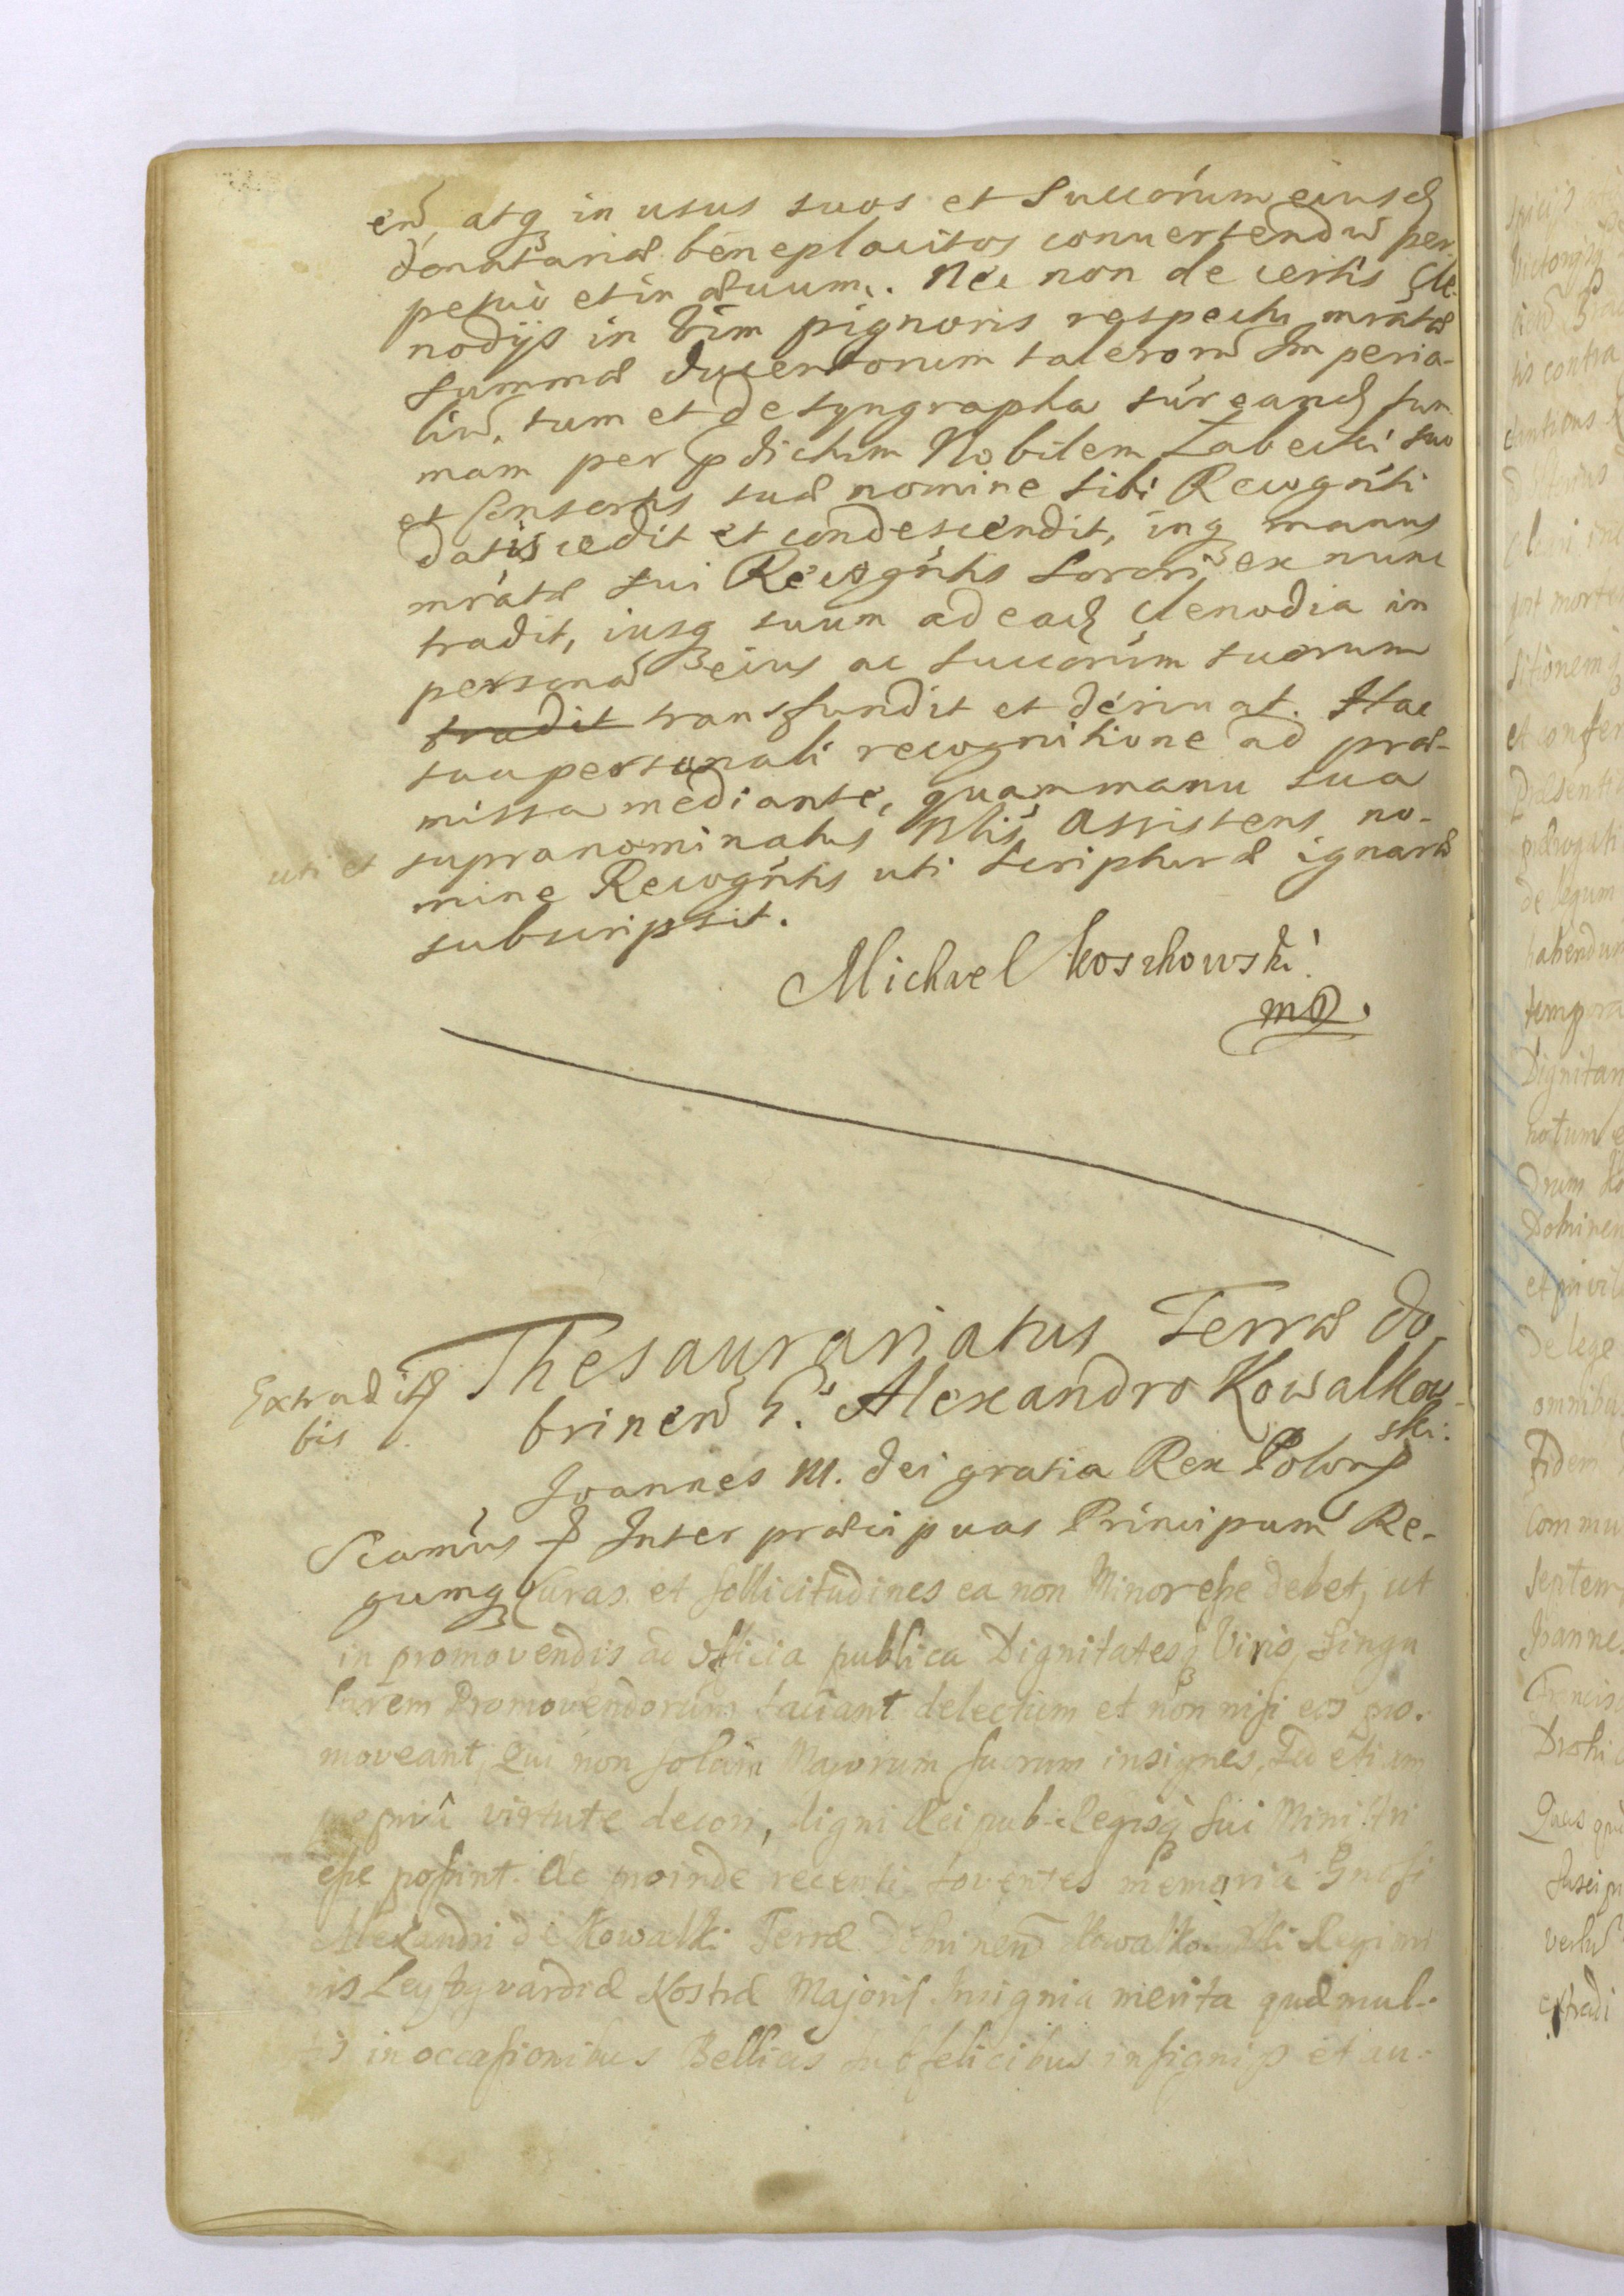 en̄, atq̨ in usus suos et Succorum eiusd
donatariæ beneplacitos convertendū per
petuò et in ævum. Nec non de certis Cle-
nodijs in vim pignoris respectu mratæ
summæ ducentorum talerorū Imperia-
liū, tum et de syngrapha sup eand sum
mam per pdictum Nobilem Zabecki suo
et Consortis suæ nomine sibi Recogñti
datis cedit et condescendit, inq̨ manus
mratæ sui Recogñtis Sororis ex nunc
tradit, iusq̨ suum ad ead Clenodia in
personā eius ac Succorum suorum
tradit transfundit et derivat. Hac
sua personali recognitione ad præ-
missa mediante, quam manu sua
uti et
supranominatus Nblis Assistens no-
mine Recogñtis uti scripturæ ignaræ
subscripsit.
Michael Koszkowski
mp.
Extradit
bis
Thesaurariatus Terræ Do-
brinen̄ G. Alexandro Kowalkow-
ski.
Joannes III. Dei gratia Rex Polon
Scamus Inter præcipuas Principum Re-
gumq̨ Curas et sollicitudines ea non Minor esse debet, ut
in promovendis ad officia publica Dignitatesq̨ Viris, singu
larem Promovendorum faciant delectum et non nisi eos pro-
moveant, Qui non solùm Majorum suorum insignes, sed etiam
propriâ virtute decori, digni Reipub. Regisq̨ sui Ministri
esse possint. Ac proinde recenti foventes memoriâ Gnosi
Alexandri de Kowalki Terræ Dobrinen̄ Kowalkowski Regimi
nis Leyfgvardiæ Nostræ Majoris Insignia merita quæ mul-
tis in occasionibus Bellicis felicibus insignijs et au-